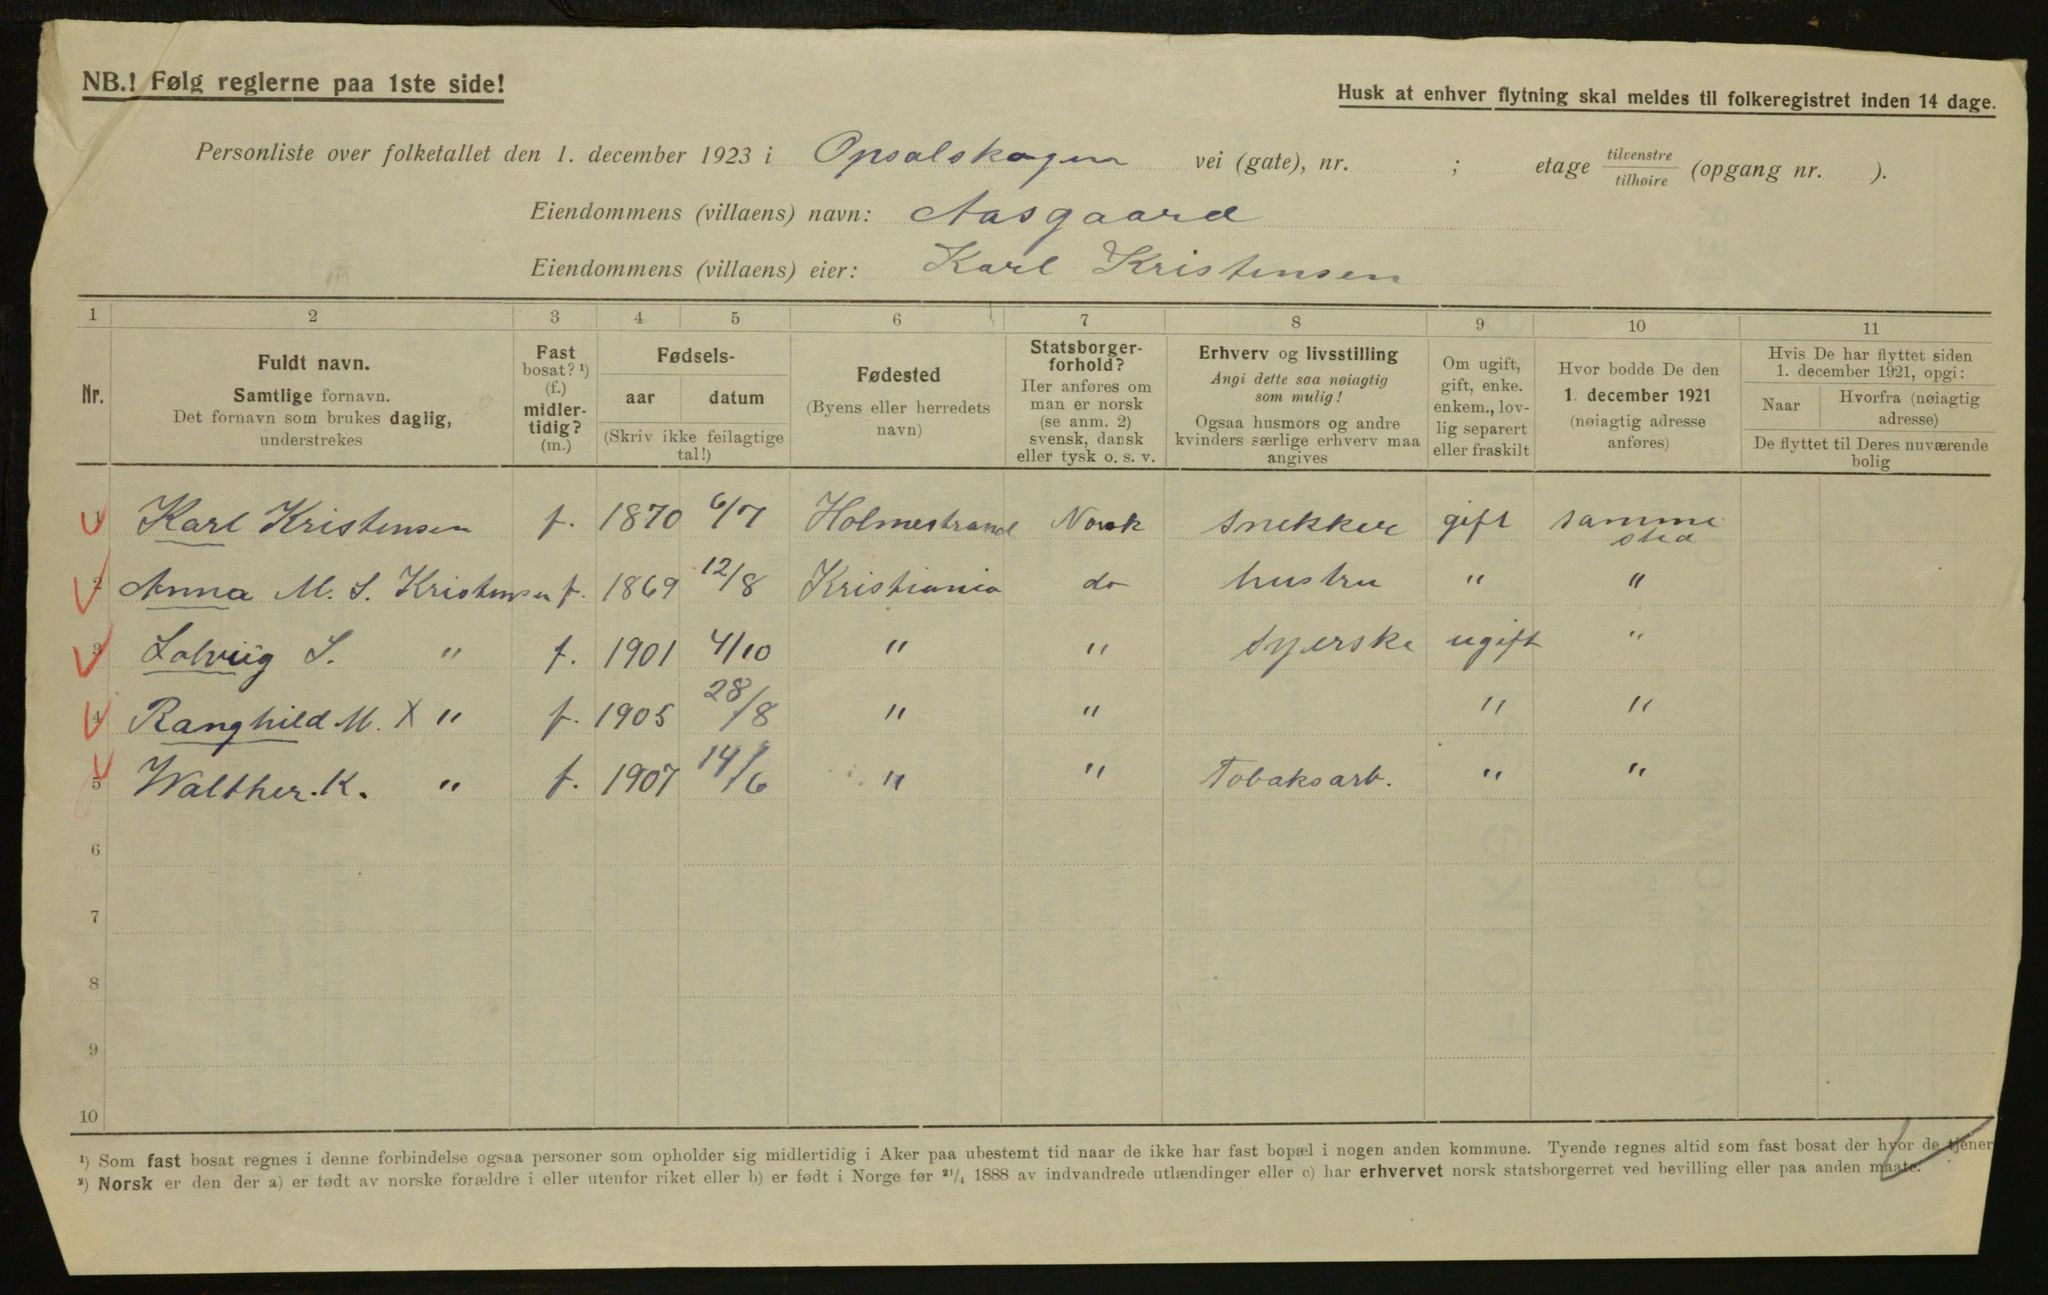 NB.! Følg reglerne paa 1ste side!
Husk at enhver flytning skal meldes til folkeregistret inden 14 dage.
Personliste over folketallet den 1. december 1923 i Opsalskogen vei (gate), nr. ; etage tilvenstre/tilhøire (opgang nr. ).
Eiendommens (villaens) navn: Aasgaard
Eiendommens (villaens) eier: Karl Kristensen
1 2 3 4 5 6 7 8 9 10 11
Nr.
Fuldt navn.
Samtlige fornavn.
Det fornavn som brukes daglig,
understrekes
Fast
bosat? ¹)
(f.)
midler-
tidig?
(m.)
Fødsels-
aar datum
(Skriv ikke feilagtige
tal!)
Fødested
(Byens eller herredets
navn)
Statsborger-
forhold?
Her anføres om
man er norsk
(se anm. 2)
svensk, dansk
eller tysk o. s. v.
Erhverv og livsstilling
Angi dette saa nøiagtig
som mulig!
Ogsaa husmors og andre
kvinders særlige erhverv maa
angives
Om ugift,
gift, enke.
enkem., lov-
lig separert
eller fraskilt
Hvor bodde De den
1. december 1921
(nøiagtig adresse
anføres)
Hvis De har flyttet siden
1. december 1921, opgi:
Naar Hvorfra (nøiagtig
adresse)
De flyttet til Deres nuværende
bolig
1 Karl Kristensen f. 1870 6/7 Holmestrand Norsk Snekker gift samme
sted
2 Anna M. S. Kristensen f. 1869 12/8 Kristiania do hustru " "
3 Solveig S. " f. 1901 4/10 " " Syerske ugift "
4 Ranghild M. X " f. 1905 28/8 " " " "
5 Walther. K. " f. 1907 14/6 " " Tobaksarb. " "
6
7
8
9
10
¹) Som fast bosat regnes i denne forbindelse ogsaa personer som opholder sig midlertidig i Aker paa ubestemt tid naar de ikke har fast bopæl i nogen anden kommune. Tyende regnes altid som fast bosat der hvor de tjener
²) Norsk er den der a) er født av norske forældre i eller utenfor riket eller b) er født i Norge før ²¹/₄ 1888 av indvandrede utlændinger eller c) har erhvervet norsk statsborgerret ved bevilling eller paa anden maate.